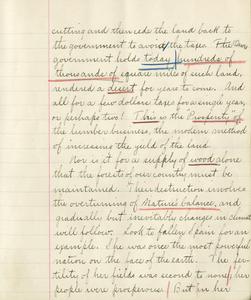 cutting and then cede the land back to
the government to avoid the taxes. The
government holds today hundreds of
thousands of square miles of such land,
rendered a desert for years to come. And
all for a few dollars taxes for a single year,
or perhaps two! This is the Prosperity of
the lumber business, the modern method
of increasing the yield of the land.
Nor is it for a supply of wood alone
that the forests of our country must be
maintained. Their destruction involves
the overturning of Nature's balance, and
gradually but inevitably changes in climate
will follow. Look to fallen Spain for an
example. She was once the most powerful
nation on the face of the earth. The fer-
tility of her fields was second to none, the
people were prosperous. But in her